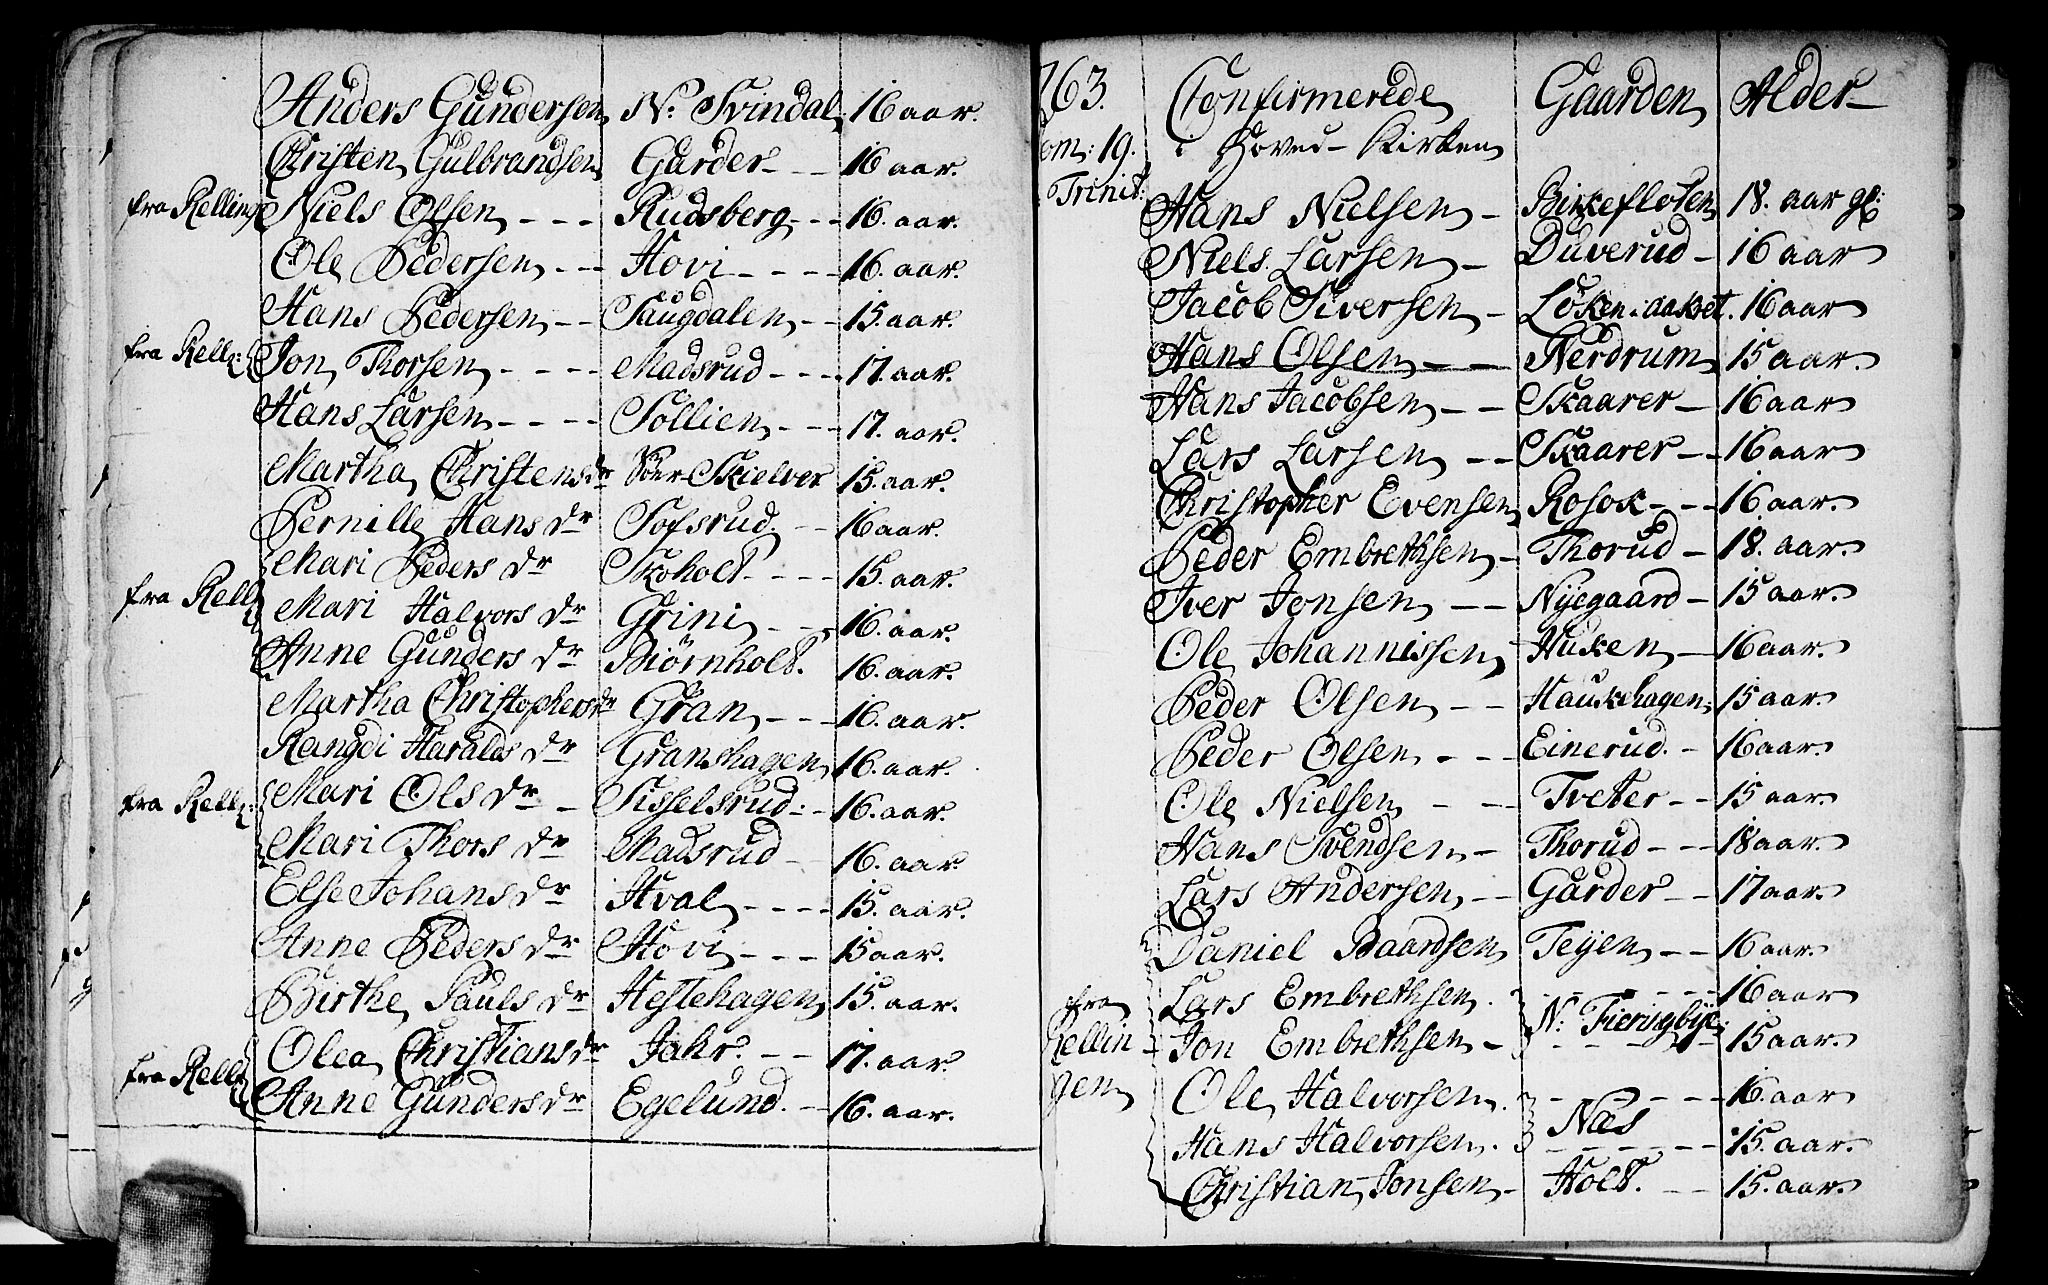 Anders Gunderson N: Svindal 16 aar.
Christen Gulbrandsen Garder - - 16 aar.
fra Relling: Niels Olsen - - - Rudsberg - - 16. aar.
Ole Pedersen - - Hovi - - - - 16. aar.
Hans Pedersen - - Saugdalen - - 15. aar.
fra Rell: Jon Thorsen - - - - Madsrud - - - 17. aar.
Hans Larsen - - - - Sollien - - - 17. aar.
Martha Christensdr Skielver 15. aar.
Pernille Hans dr Sofsrud. - - 16 aar.
Mari Peders dr Skoholt - - - - 15. aar.
fra Rell: Mari Halvors dr Grini - - - 16. aar.
Anne Gunders dr Biørnholt. 16. aar.
Martha Christophersdr Gran - - - 16. aar.
Rangdi Haralds dr Granshagen 16. aar.
fra Rell: Mari Ols dr - Sisselsrud: - 16. aar.
Mari Thors dr Madsrud - 16. aar.
Else Johans dr Hval - - - - 15. aar.
Anne Peders dr Hovi - - - 15 aar.
Birthe Pauls dr Hestehagen 15. aar.
Olea Christiansdr Jahr. - - 17. aar.
fra Rell: Anne Gunders dr Egelund. - 16. aar.
763. Confirmerede Gaarden Alder
om: 19. i Hoved-Kirken
Trinit:
Hans Nielsen - Birkefloten 18. aar gl:
Niels Larsen - Duverud - 16 aar
Jacob Siversen - Löken i aaket. 16 aar
Hans Olsen - - Nerdrum 15 aar.
Hans Jacobsen - - Skaarer - 16 aar
Lars Larsen - - Skaarer - - 16 aar
Christopher Evensen Rosok - - - 16 aar.
Peder Embrethsen - Thorud - 18. aar.
Iver Jonsen - - Nyegaard - 15 aar.
Ole Johannissen Huken - 16 aar.
Peder Olsen - - Haukehagen 15 aar.
Peder Olsen - - - Einerud. - 16 aar.
Ole Nielsen - - - Tveter - - 15 aar.
Hans Svendsen - Thorud - - - 18 aar.
Lars Andersen - - Garder - - 17 aar.
Daniel Baardsen Teyen - - - 16 aar.
fra Lars Embrethsen. - - - - - 16 aar
N: Fieringbye
Rellin- Jon Embrethsen - - - - - 15 aar.
gen Ole Halvorsen. - - - - 16. aar
Næs
Hans Halvorsen. - - - - 15. aar.
Christian Jonsen - Holt. - - 15. aar.